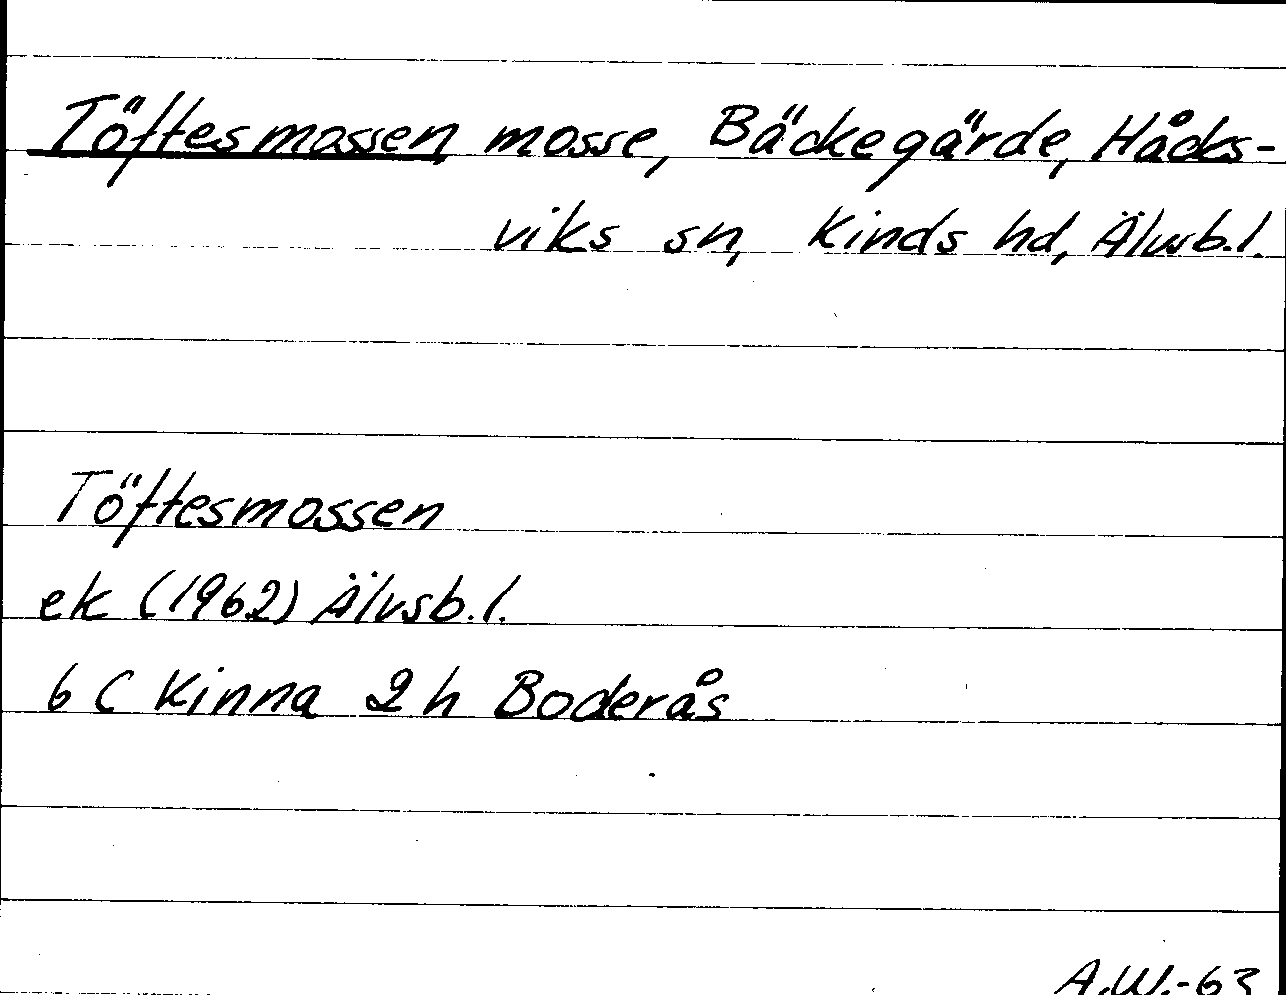 Töftesmossen, mosse, Bäckegärde, Håcks-
viks sn, Kinds hd, Älvsb.l.
Töftesmossen
ek (1962) Älvsb.l.
6 C Kinna 2 h Boderås
A.W.-63